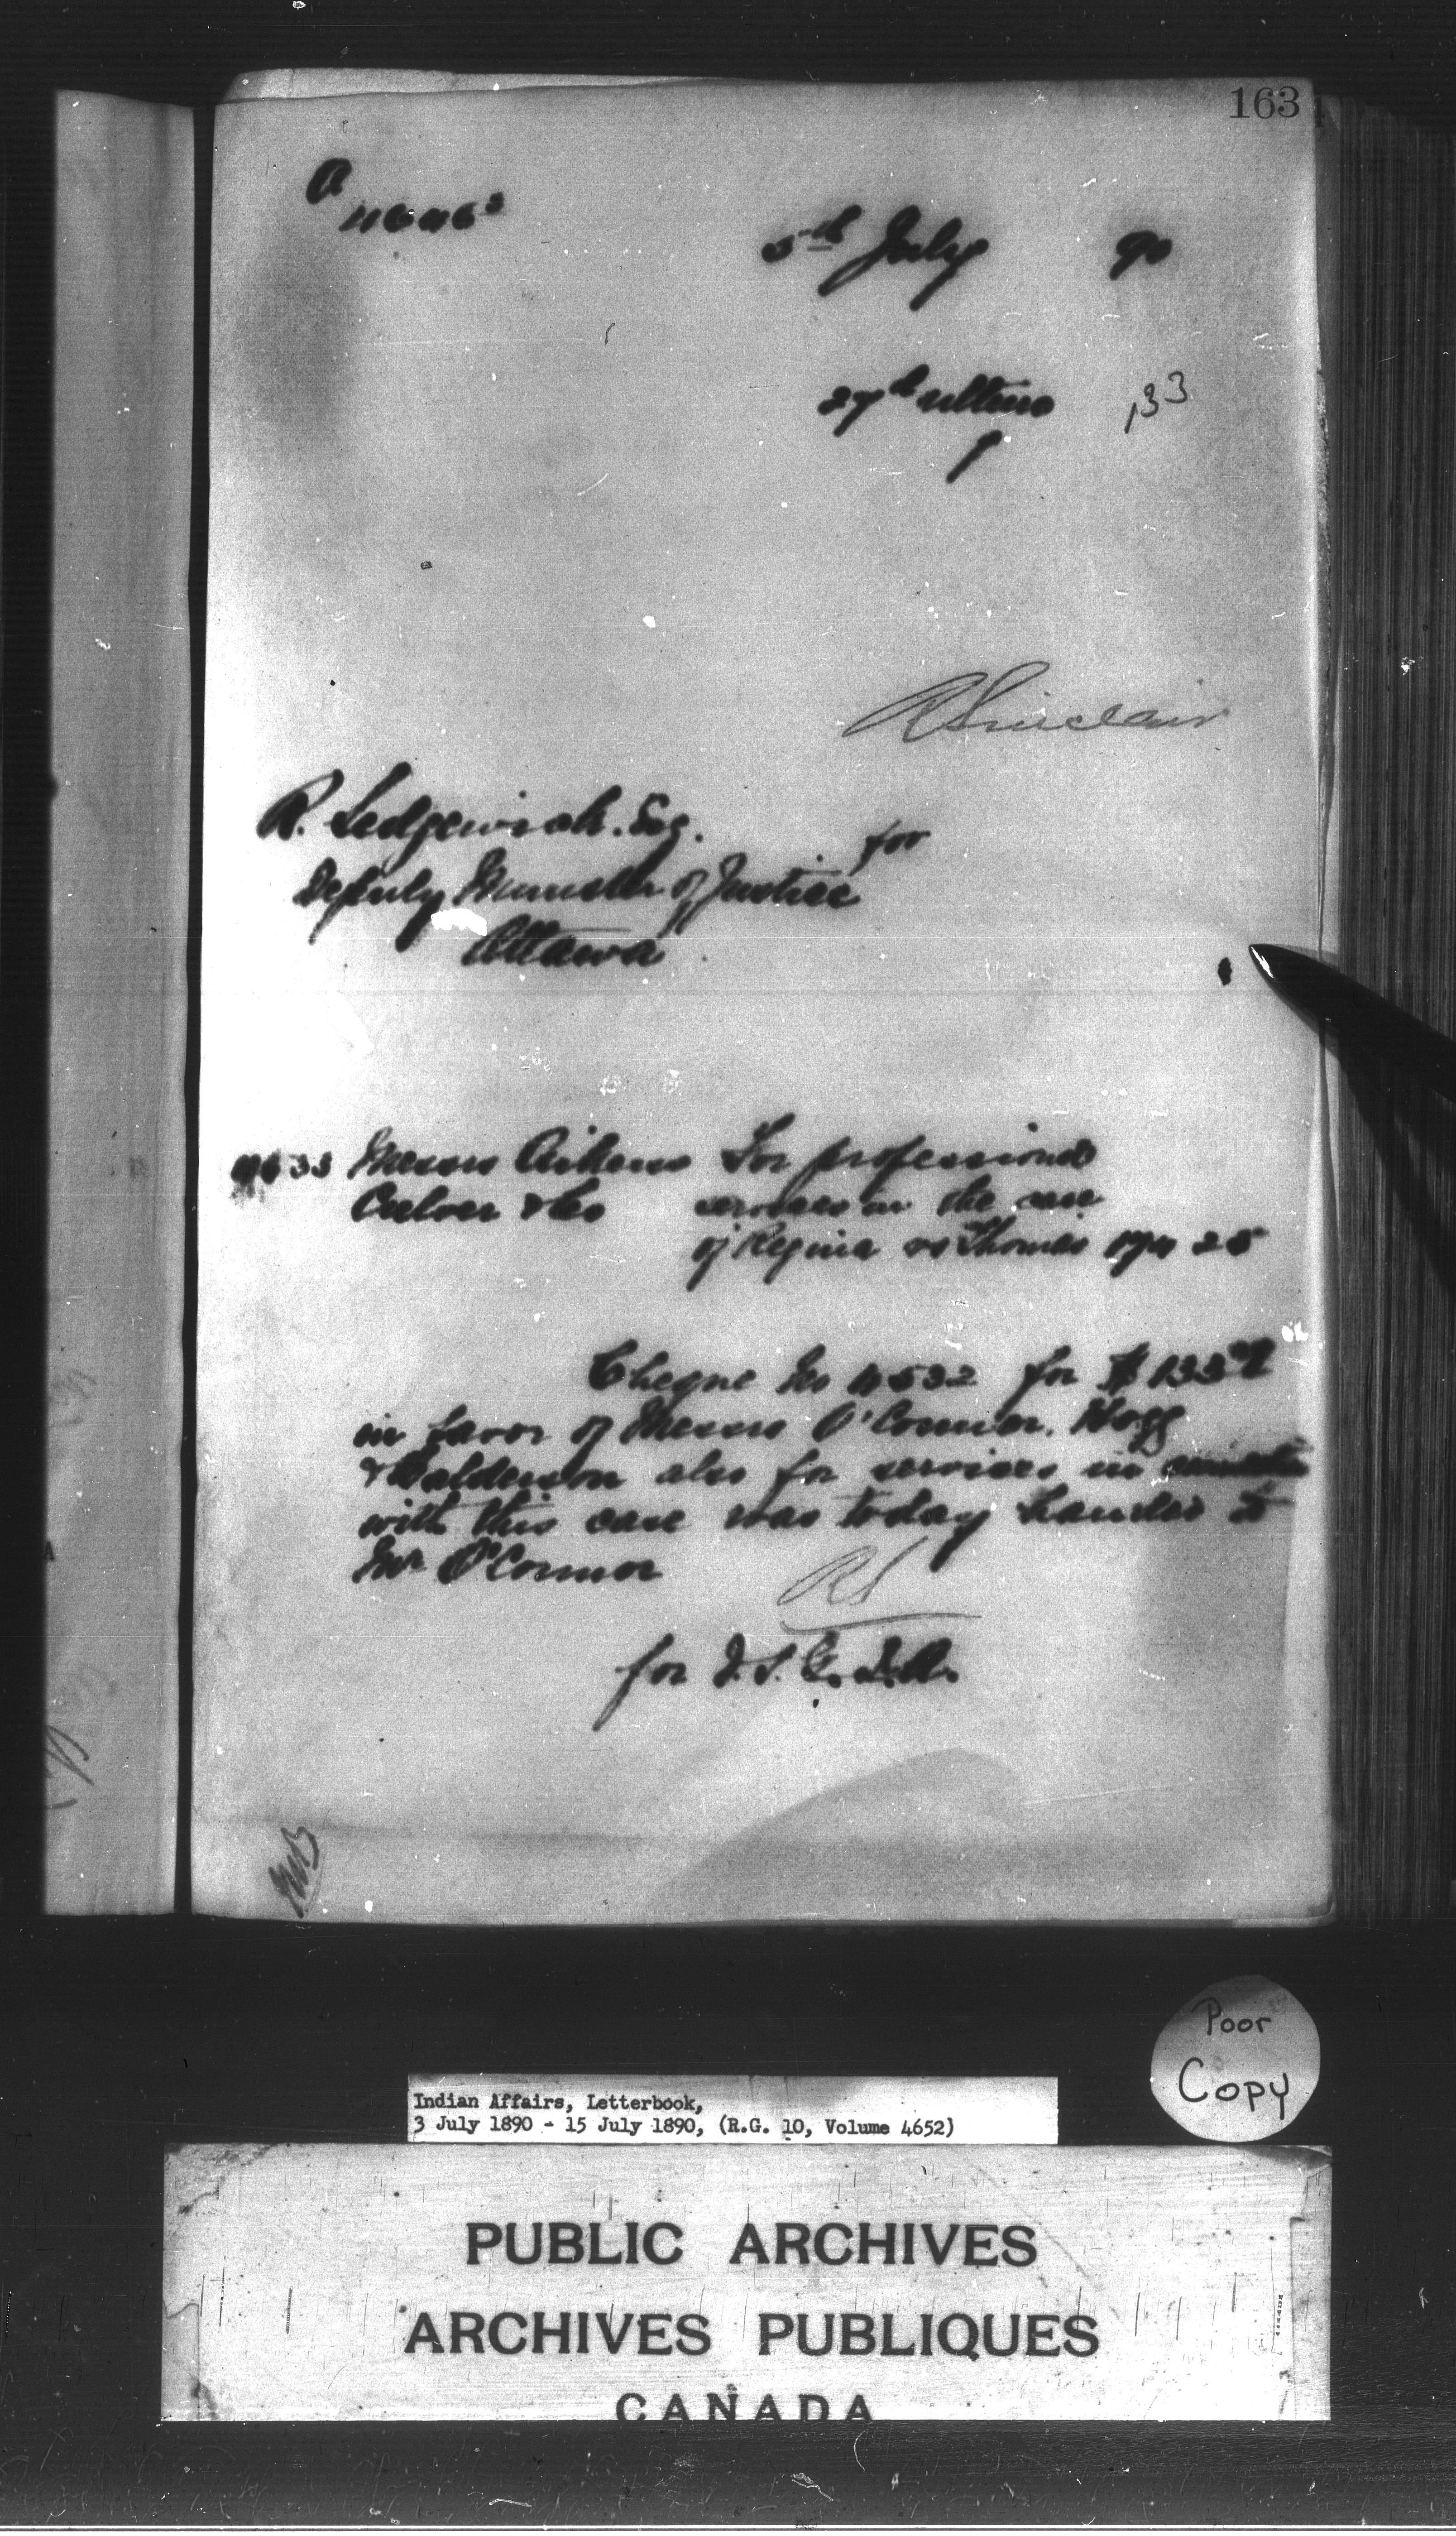 163
5th July 90
27th ultimo 133
RSinclair
R. Sedgewick. Esq.
for
Deputy Minister of Justice
Ottawa
Messrs Aikens For professional
Culver & Co services in the case
of Regina vs Thomas 25
Cheque No 4532 for $133
in favor of Messrs O'Connor. Hogg
& Balderson also for services in
with this case was today handed to
Mr O'Connor
RS
for D.S.G.I.A.
Poor
Copy
Indian Affairs, Letterbook,
3 July 1890 - 15 July 1890, (R.G. 10, Volume 4652)
PUBLIC ARCHIVES
ARCHIVES PUBLIQUES
CANADA